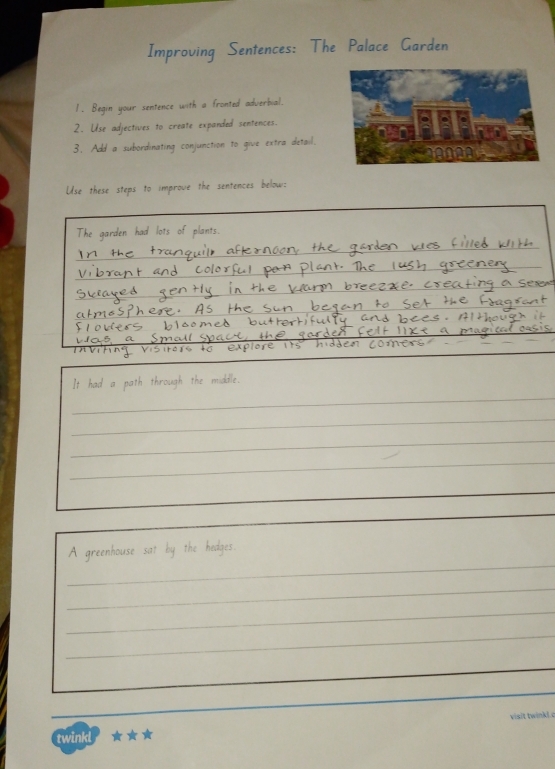 Improving Sentences: The Palace Garden
1. Begin your sentence with a fronted adverbial.
2. Use adjectives to create expanded sentences.
3. Add a subordinating conjunction to give extra detail.
Use these steps to improve the sentences below:
The garden had lots of plants.
In the tranquil afternoon, the garden was filled with
vibrant and colorful plant. The lush greeneny
swayed gently in the warm breezze. creating a serene
atmosphere. As the sun began to set the fragrant
flowers bloomed buttertifully and bees. Although it
was a small space, the garden felt like a magical oasis
inviting visitors to explore its hidden corners
It had a path through the middle.
A greenhouse sat by the hedges.
twinkl
visit twinkl